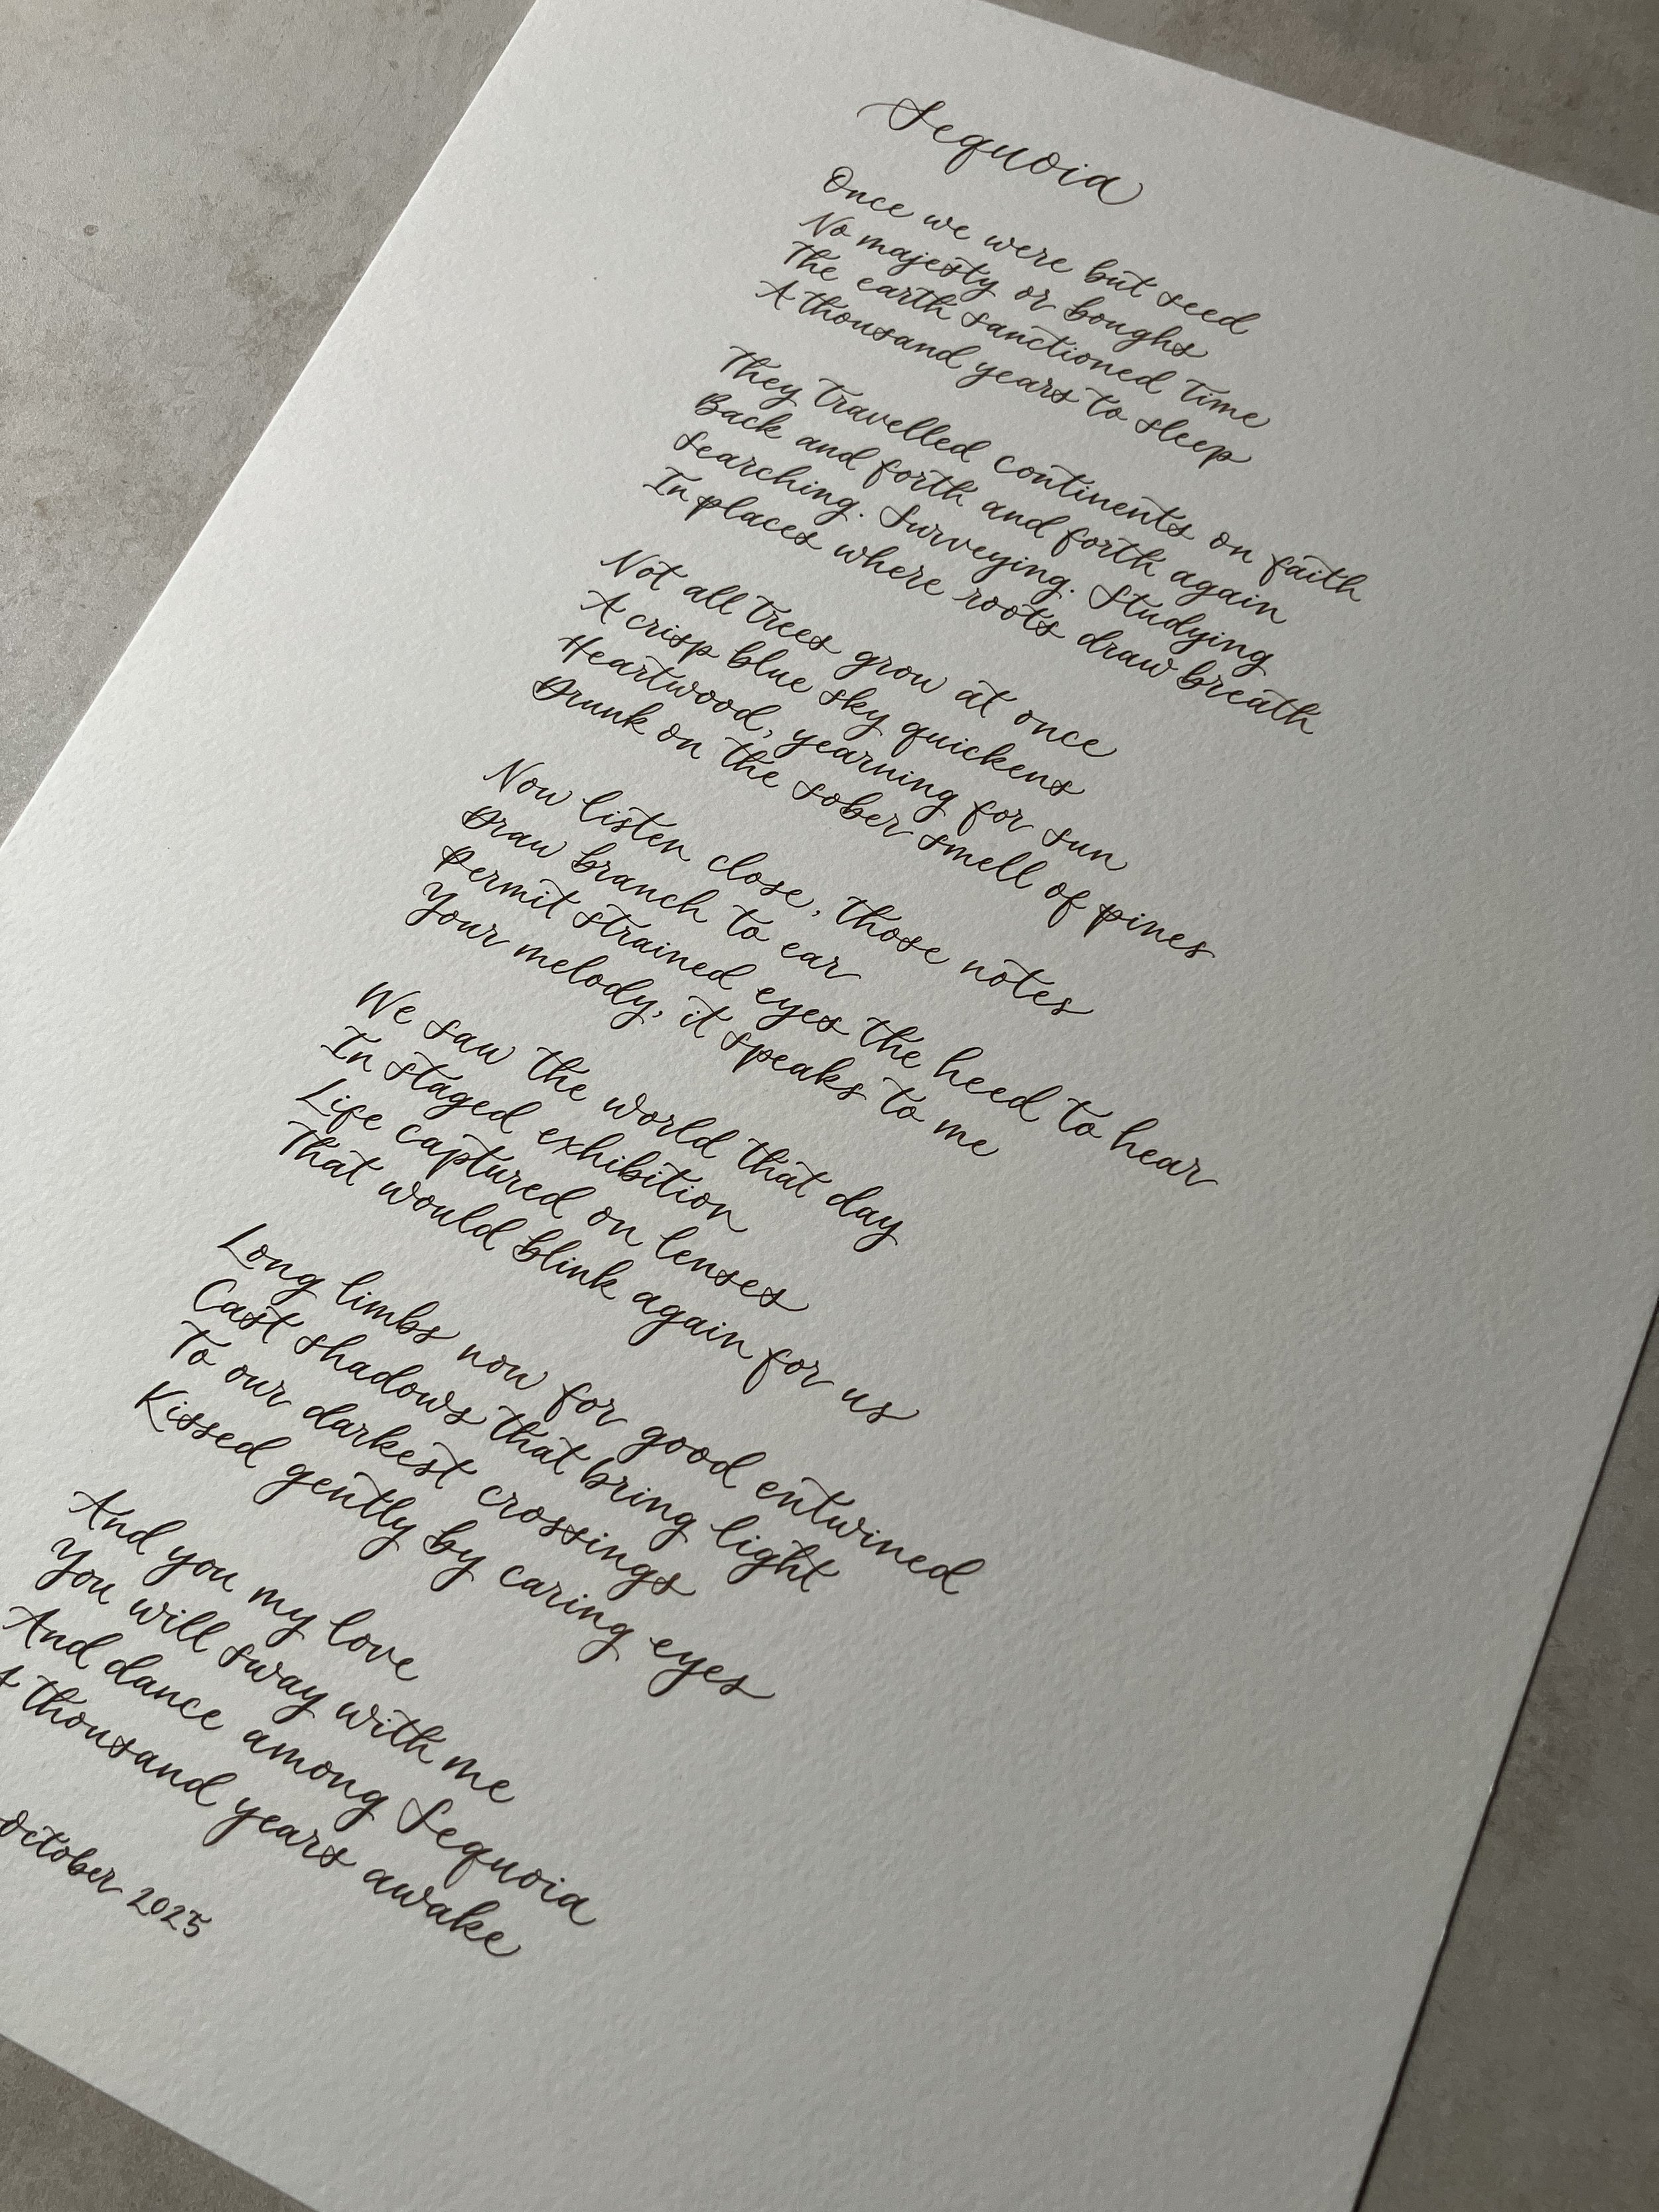 Sequoia
Once we were but seed
No majesty or boughs
The earth sanctioned time
A thousand years to sleep
They travelled continents on faith
Back and forth and forth again
Searching. Surveying. Studying
In places where roots draw breath
Not all trees grow at once
A crisp blue sky quickens
Heartwood, yearning for sun
Drunk on the sober smell of pines
Now listen close, those notes
Draw branch to ear
Permit strained eyes the heed to hear
Your melody, it speaks to me
We saw the world that day
In staged exhibition
Life captured on lenses
That would blink again for us
Long limbs now for good entwined
Cast shadows that bring light
To our darkest crossings
Kissed gently by caring eyes
And you my love
You will sway with me
And dance among Sequoia
A thousand years awake
October 2025